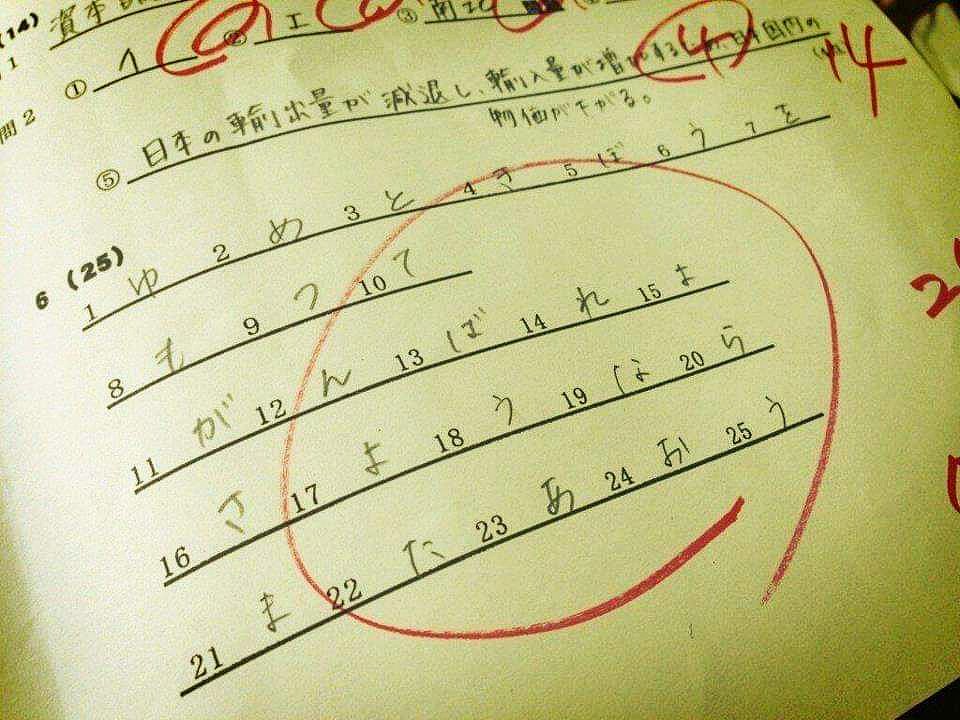 (14) 資本
① イ ② エ ③
問2
⑤ 日本の輸出量が減退し、輸入量が増加するため、日本国内の
物価が下がる。
(4) 14
6 (25)
1 ゆ 2 め 3 と 4 き 5 ぼ 6 う 7 を
8 も 9 つ 10 て
11 が 12 ん 13 ば 14 れ 15 よ
16 さ 17 よ 18 う 19 な 20 ら
21 ま 22 た 23 あ 24 お 25 う